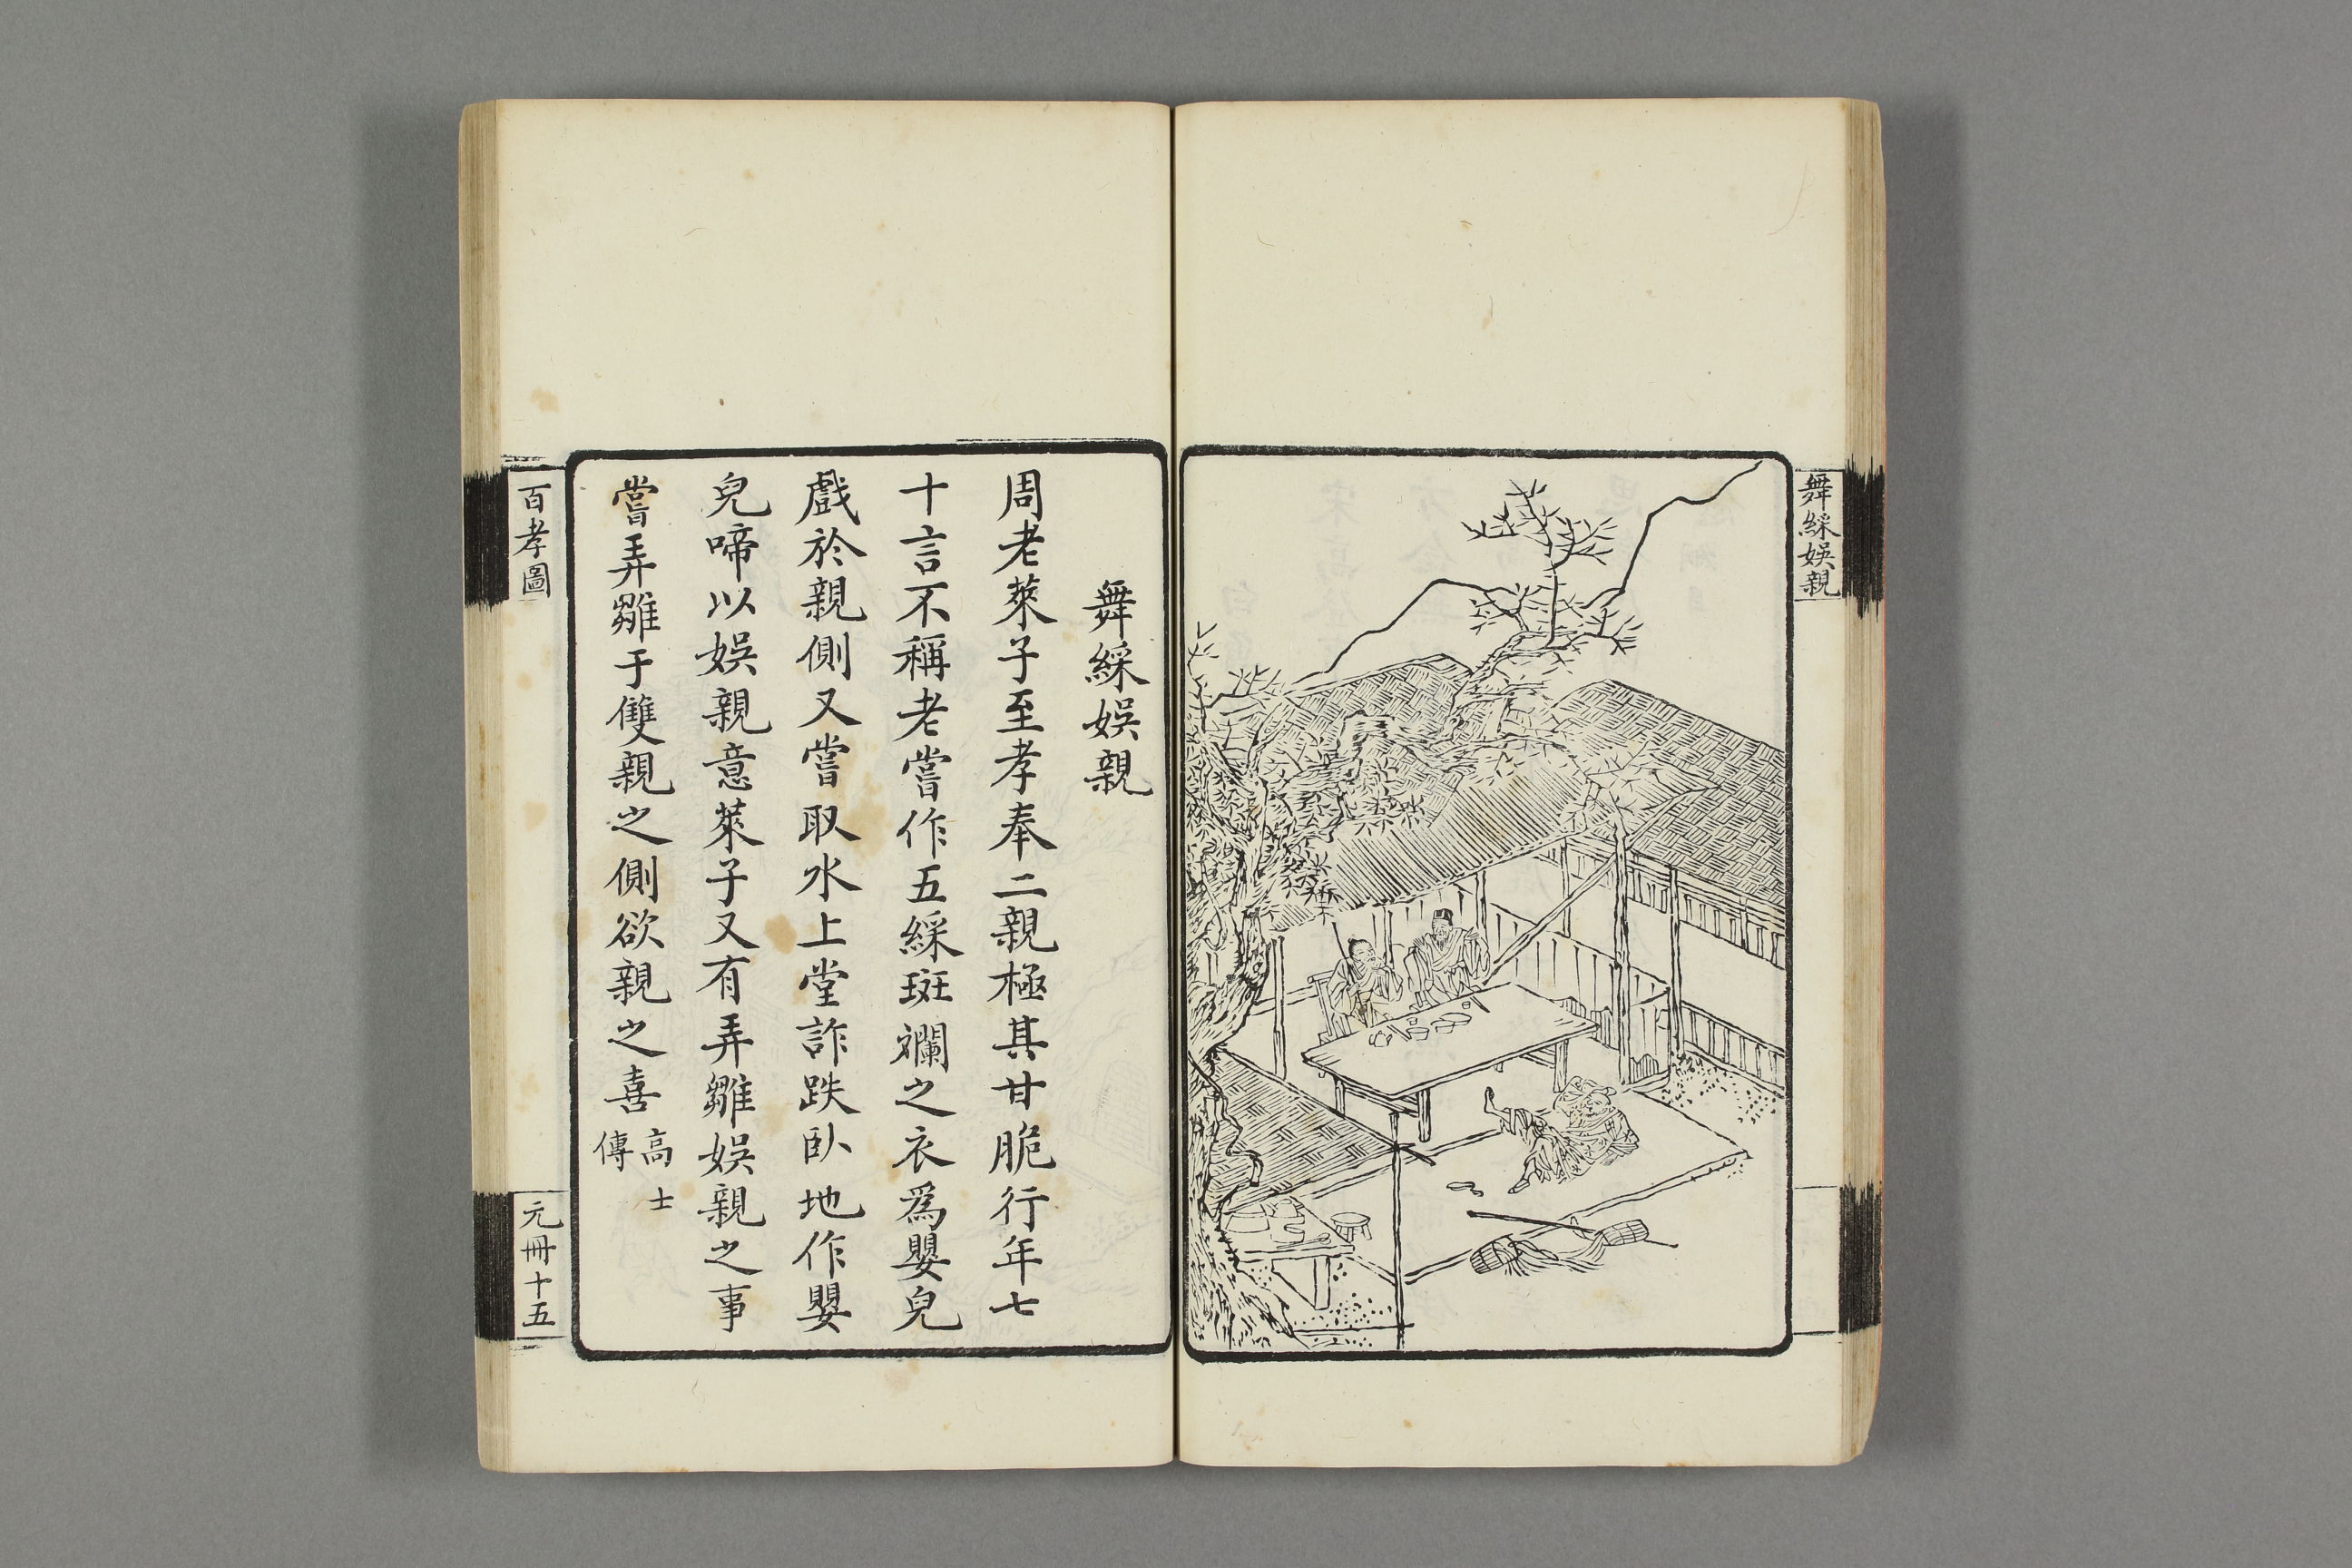 舞綵娛親
舞綵娛親
周老萊子至孝奉二親極其甘脆行年七
十言不稱老嘗作五綵斑斕之衣爲嬰兒
戲於親側又嘗取水上堂詐跌臥地作嬰
兒啼以娛親意萊子又有弄雛娛親之事
嘗弄雛于雙親之側欲親之喜
高士
傳
百孝圖
元冊十五